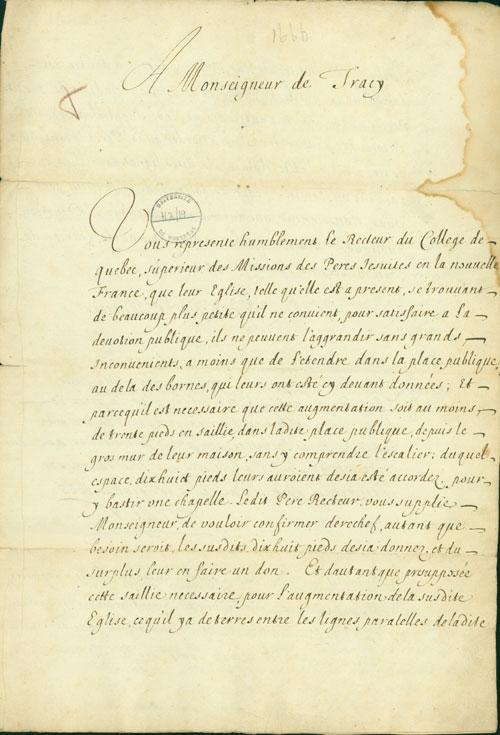 1666
A Monseigneur de Tracy
Vous represente humblement le Recteur du College de
quebec, superieur des Missions des Peres Iesuites en la nouvelle
France, que leur Eglise, telle qu'elle est a present, se trouvant
de beaucoup plus petite qu'il ne convient, pour satisfaire a La
devotion publique, ils ne peuvent l'aggrandir sans grands
Inconvenients, a moins que de L'etendre dans la place publique,
au dela des bornes, qui leurs ont esté cy devant données; Et
parcequ'il est necessaire que cette augmentation soit au moins
de trente pieds en saillie, dans ladite place publique, depuis le
gros mur de leur maison, sans y comprendre l'escalier; duquel
espace, dixhuict pieds leurs auroient desia esté accordez, pour
y bastir vne chapelle. Ledit Pere Recteur, vous supplie
Monseigneur, de vouloir confirmer derechef, autant que
besoin seroit, les susdits dixhuit pieds desia donnez, et du
surplus, leur en faire un don. Et dautant que presupposée
cette saillie necessaire, pour L'augmentation de la susdite
Eglise, ce qu'il y a de terres entre les lignes paralelles de ladite